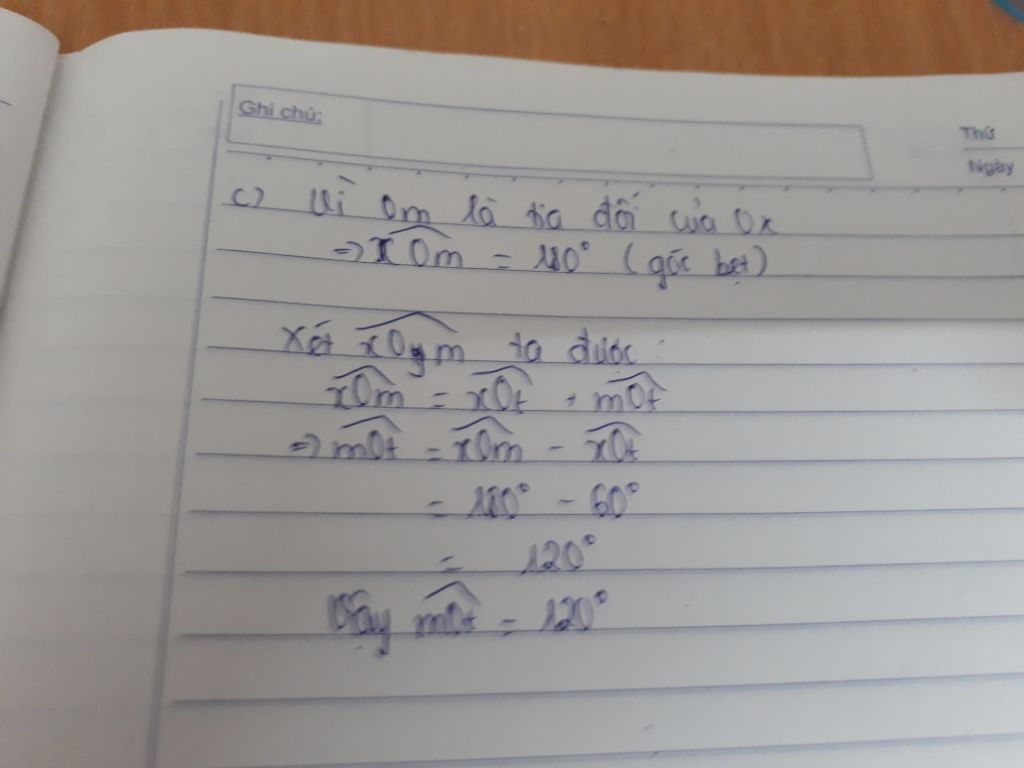 Ghi chú:
Thứ
Ngày
c) Vì Om là tia đối của Ox
=> xOm = 180° (góc bẹt)
Xét xOym ta được:
xOm = xOt + mOt
=> mOt = xOm - xOt
= 180° - 60°
= 120°
Vậy mOt = 120°